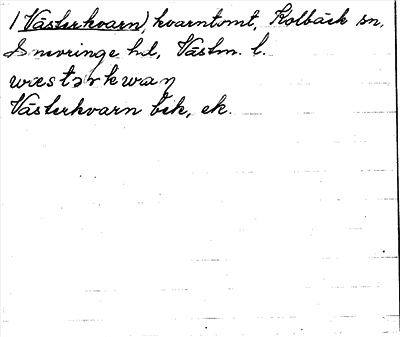 /Västerkvarn), kvarntomt, Kolbäck sn,
Snevringe hd, Västm. l.
wæstərkwaŋ
Västerkvarn bek, ek.